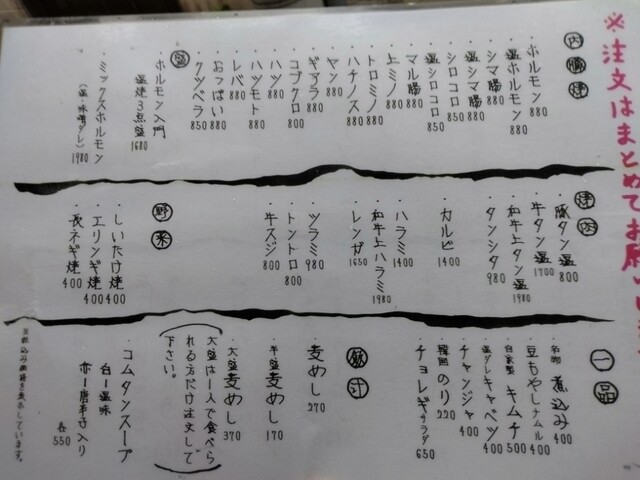 ※注文はまとめてお願いし
内臓焼
・ホルモン 880
・塩ホルモン 880
・シマ腸 880
・塩シマ腸 880
・シロコロ 850
・塩シロコロ 850
・マル腸 880
・上ミノ 880
・トロミノ 880
・ハチノス 880
・ヤン 880
・ギアラ 880
・コブクロ 800
・ハツ 880
・ハツモト 880
・レバー 880
・おっぱい 880
・クツベラ 850
盛
・ホルモン入門
塩焼3点盛 1680
・ミックスホルモン
(塩・味噌ダレ) 1980
焼肉
・豚タン塩 800
・牛タン塩 1700
・和牛上タン塩 1980
・タンシタ 980
・カルビ 1400
・ハラミ 1400
・和牛上ハラミ 1980
・レンガ 1650
・ツラミ 980
・トントロ 800
・牛スジ 800
野菜
・しいたけ焼 400
・エリンギ焼 400
・長ネギ焼 400
一品
・名物 煮込み 400
・豆もやしナムル 400
・自家製 キムチ 500
・塩ダレキャベツ 400
・チャンジャ 400
・韓国のり 220
・チョレギサラダ 650
飯汁
・麦めし 270
・半盛麦めし 170
・大盛麦めし 370
(大盛は1人で食べら
れる方だけ注文して
下さい。)
・コムタンスープ
白ー塩味
赤ー唐辛子入り
各550
※税込み価格を表示しています。